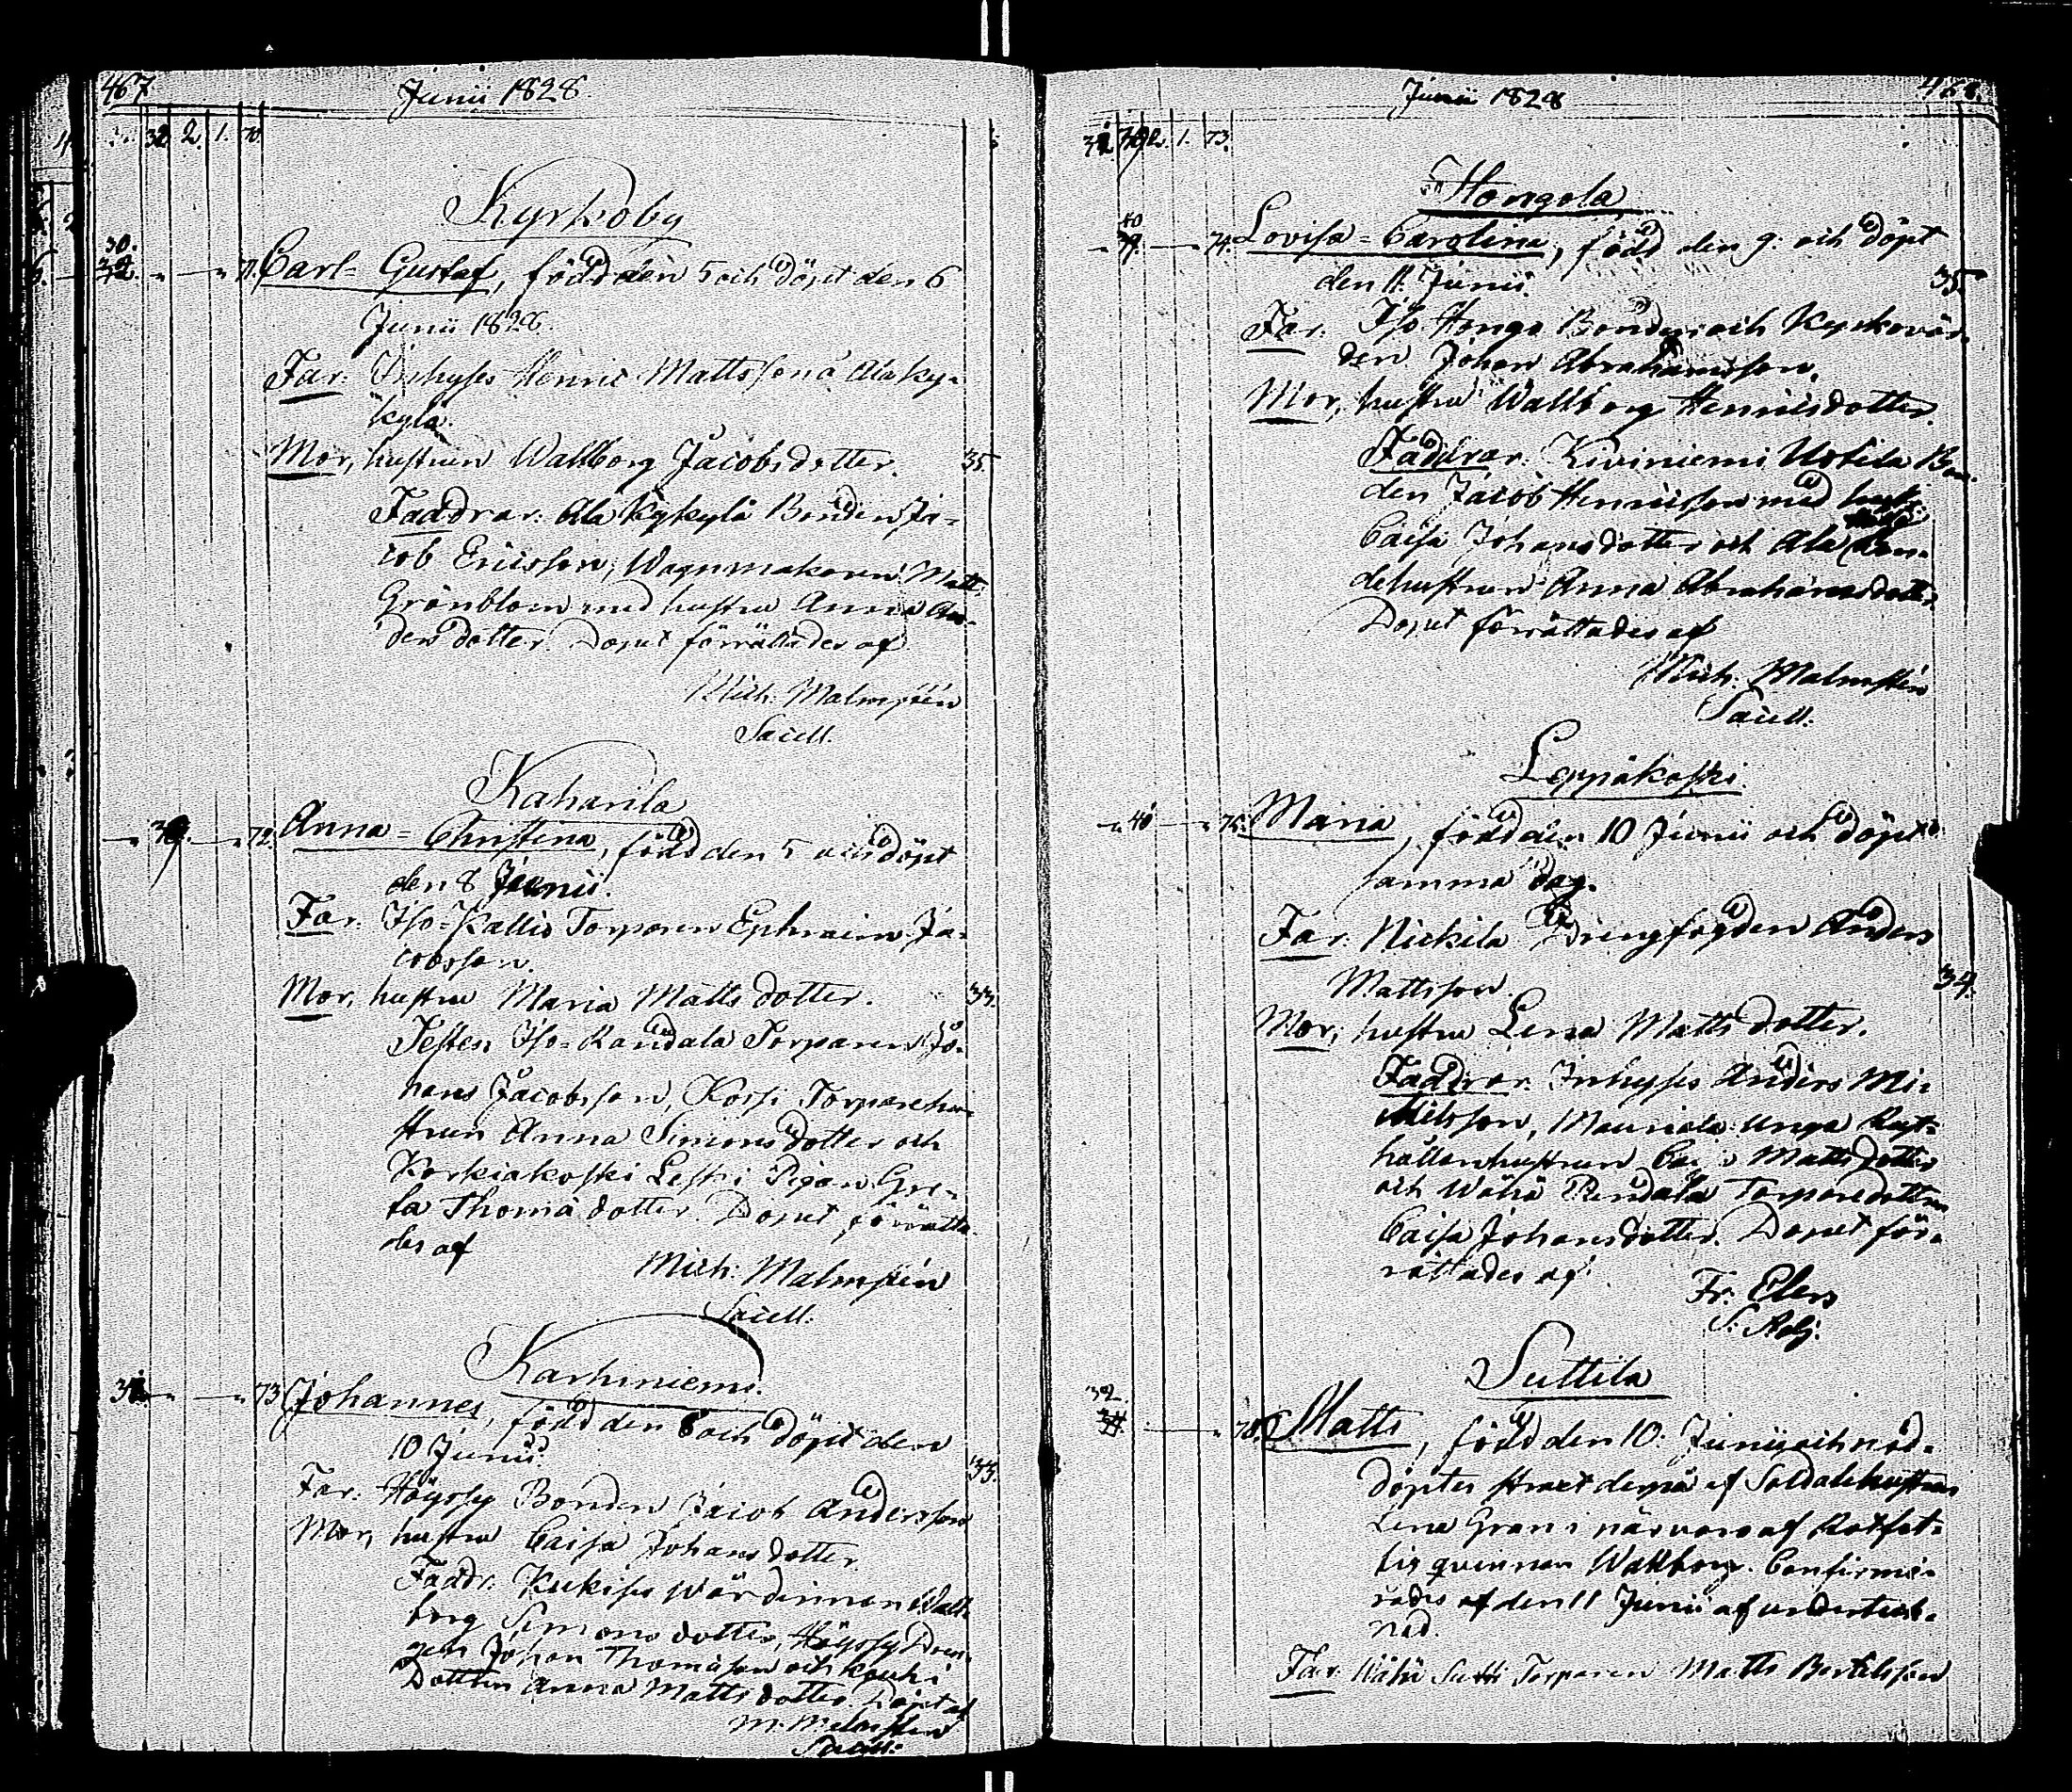 467
Junii 1828.
32 2. 1. 70.
Kyrkoby
30.
71. Carl=Gustaf, född den 5 och döpt den 6
Junii 1828.
Far: Inhyses Henric Mattsson å Ala Ky-
kylä.
Mor, hustrun Wallborg Jacobsdotter. 35
Faddrar: Ala Kykylä Bonden Ja-
cob Ericsson, Wagnmakaren Matts
Grönblom med hustru Anna An-
ders dotter. Dopet förrättades af
Mich: Malmstén
Sacell.
Kaharila
39. 72. Anna=Christina, född den 5 och döpt
den 8 Junii.
Far: Iso=Kallio Torparen Ephraim Ja-
cobsson.
Mor, hustru Maria Matts dotter. 33.
Testes: Iso=Randala Torparen Jo-
hans Jacobsson, Korsi Torparehu-
strun Anna Simonsdotter och
Korkiakoski Pigan Gre-
ta Thomä dotter. Dopet förrätta-
des af
Mich: Malmstén
Sacell:
Karhiniemi.
73. Johannes, född den 8 och döpt den
10 Junii. 33.
Far: Höyssy Bonden Jacob Andersson
Mor, hustru Caisa Johans dotter
Faddr: Wärdinnan Wall-
borg Simons dotter, Höyssy Dren-
gen Johan Thomasson och Kouhi
Dottren Anna Mattsdotter. Döpt af
M. Malmstén
Sacell:
468.
Junii 1828
2. 1. 73.
Hongola
40
39. 74. Lovisa=Carolina, född den 9. och döpt
den 11. Junii. 35.
Far: Iso Hongo Bonden och Kyrkovär-
den Johan Abrahamsson.
Mor, hustru Wallborg Henricsdotter.
Faddrar: Kiviniemi Uotila Bon-
den Jacob Henricsson med hustr.
Caisa Johansdotter och Ala
dehustrun Anna Abrahamsdotter.
Dopet förrättades af
Mich: Malmstén
Sacell:
Leppäkoski
40 75. Maria, född den 10 Junii och döpt
samma dag.
Far: Nickila Drengfogden Anders
Mattsson. 34.
Mor, hustru Lena Matts dotter.
Faddrar: Inhyses Anders Mi-
chilsson, Mauriala unga Rust-
hållarehustrun Caisa Mattsdotter
och Wähä Pendala Torparedottren
Caisa Johansdotter. Dopet för-
rättades af
Fr: Elers
S: Adj.
Suttila
32
Matts, född den 10. Junii och nöd-
döptes strax derpå af Soldatehustrun
Lena Gran i närvaro af Rotfat-
tig qvinnan Wallborg. Confirme-
rades af den 11 Junii af underteck-
nad.
Far: Wähä Sutti Torparen Matts Bertilsson